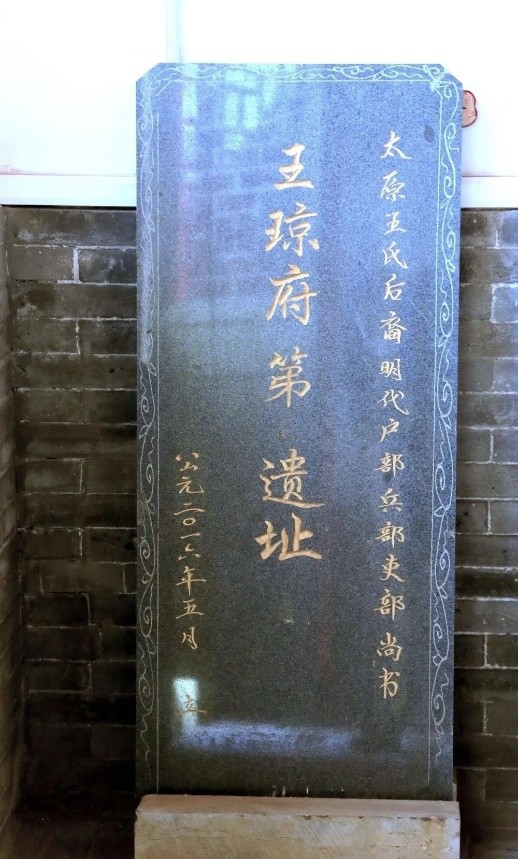 太原王氏后裔明代户部兵部吏部尚书
王琼府第遗址
公元二〇一六年五月 立